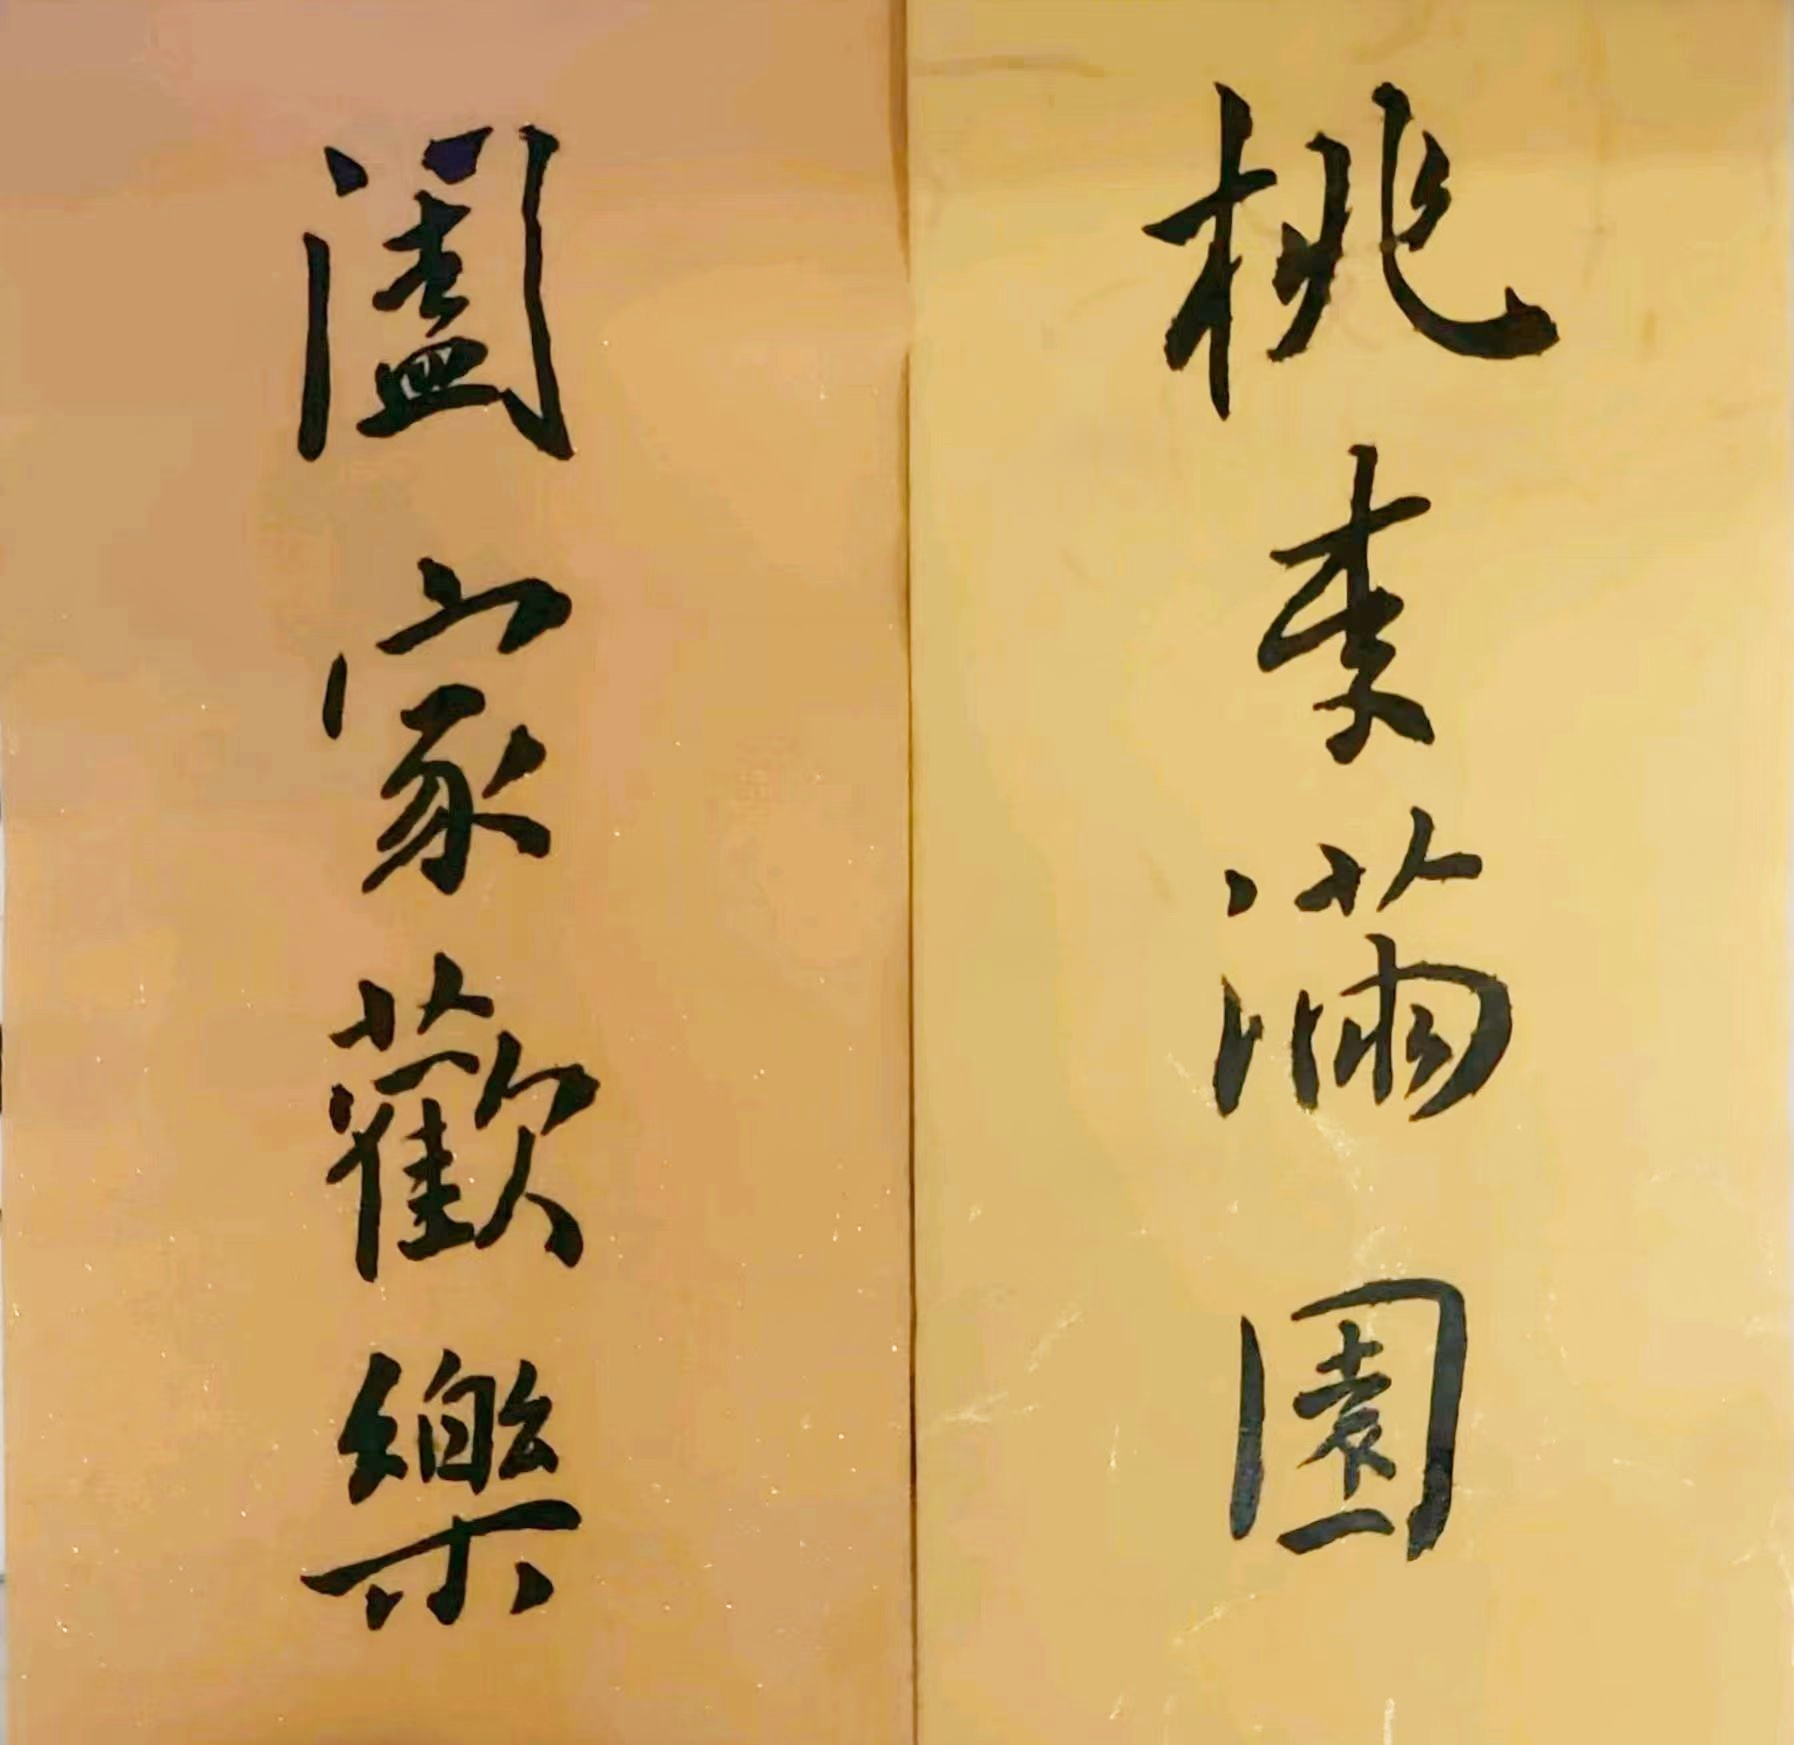 桃李滿園
闔家歡樂